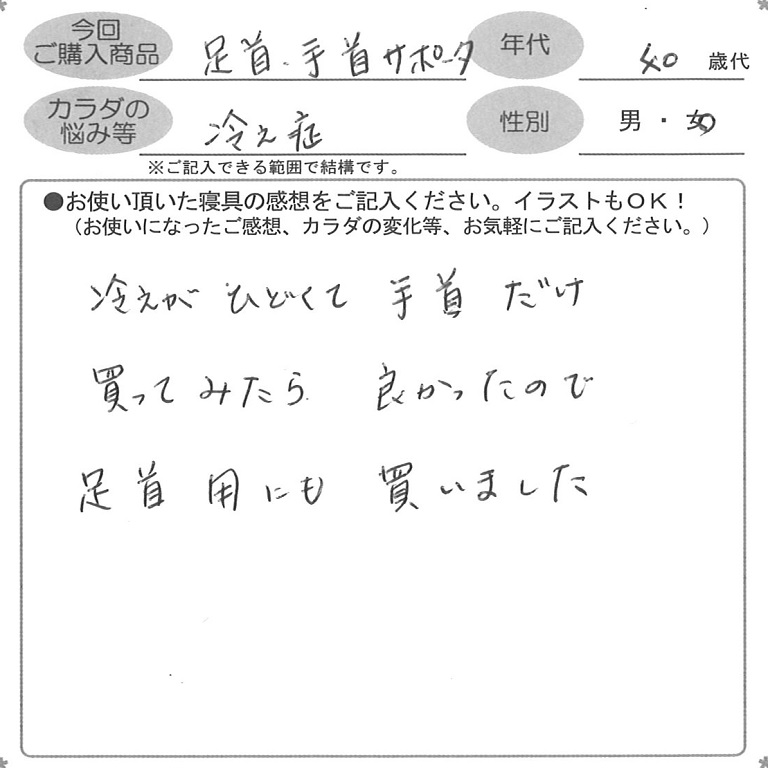 今回
ご購入商品
足首・手首サポータ
年代
40 歳代
カラダの
悩み等
冷え症
性別
男・女
※ご記入できる範囲で結構です。
●お使い頂いた寝具の感想をご記入ください。イラストもOK！
（お使いになったご感想、カラダの変化等、お気軽にご記入ください。）
冷えが ひどくて 手首 だけ
買ってみたら 良かったので
足首 用にも 買いました